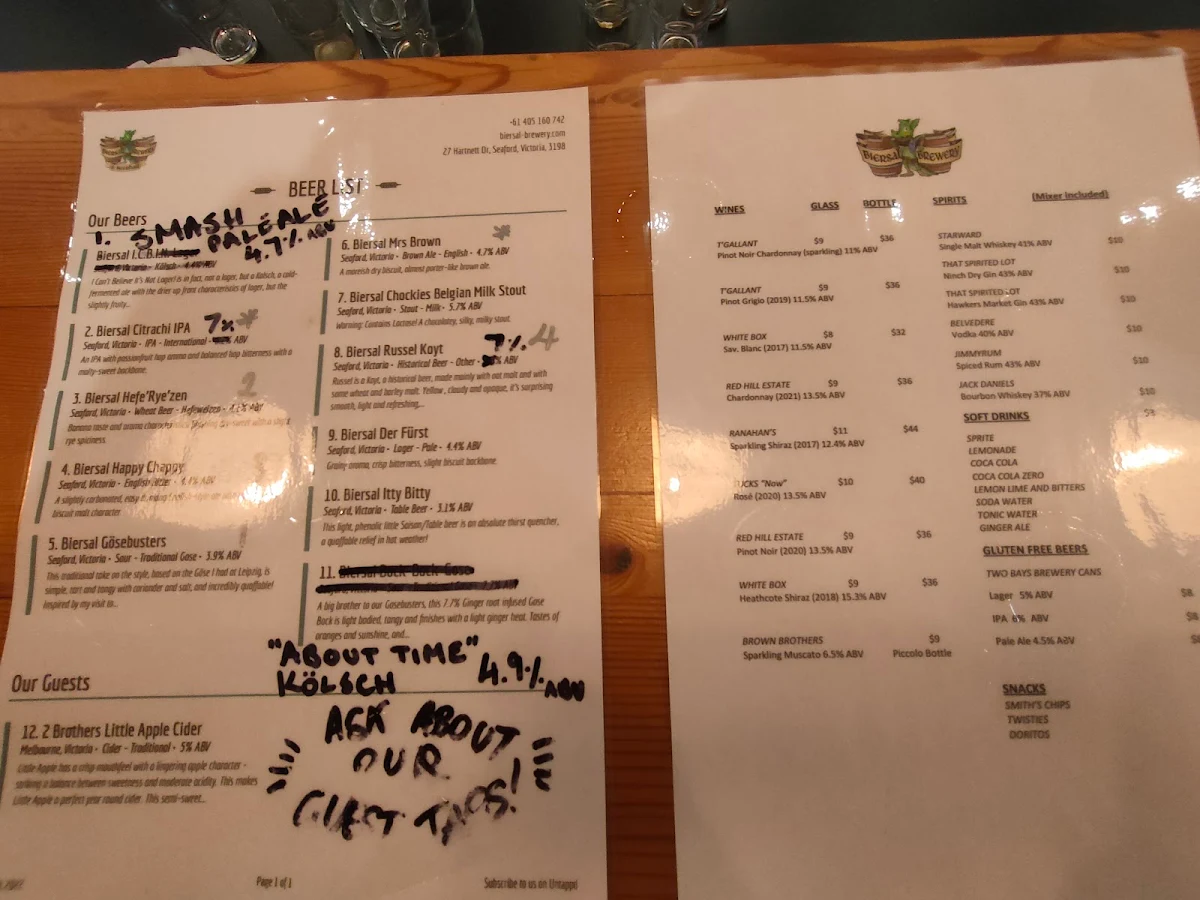 BIERSAL BREWERY
+61 405 160 742
biersal-brewery.com
27 Hartnett Dr, Seaford, Victoria, 3198
BEER LIST
Our Beers
1. SMASH
PALE ALE
4.7% ABV
Biersal I.C.B.I.N. Lager
Victoria - Kölsch - 4.4% ABV
I Can't Believe It's Not Lager! is in fact, not a lager, but a Kolsch, a cold-
fermented ale with the drier up front characteristics of lager, but the
slightly fruity...
2. Biersal Citrachi IPA 7%
Seaford, Victoria - IPA - International - ABV
An IPA with passionfruit hop aroma and balanced hop bitterness with a
malty-sweet backbone.
3. Biersal Hefe'Rye'zen 2
Seaford, Victoria - Wheat Beer - Hefeweizen - ABV
Banana taste and aroma
rye spiciness.
4. Biersal Happy Chappy
Seaford, Victoria - English ABV
A slightly carbonated, easy
biscuit malt character
5. Biersal Gösebusters
Seaford, Victoria - Sour - Traditional Gose - 3.9% ABV
This traditional take on the style, based on the Göse I had at Leipzig, is
simple, tart and tangy with coriander and salt, and incredibly quaffable!
Inspired by my visit to...
6. Biersal Mrs Brown
Seaford, Victoria - Brown Ale - English - 4.7% ABV
A moreish dry biscuit, almost porter-like brown ale.
7. Biersal Chockies Belgian Milk Stout
Seaford, Victoria - Stout - Milk - 5.7% ABV
Warning: Contains Lactose! A chocolatey, silky, milky stout.
8. Biersal Russel Koyt 7% 4
Seaford, Victoria - Historical Beer - Other - ABV
Russel is a Koyt, a historical beer, made mainly with oat malt and with
some wheat and barley malt. Yellow, cloudy and opaque, it's surprising
smooth, light and refreshing,...
9. Biersal Der Fürst
Seaford, Victoria - Lager - Pale - 4.4% ABV
Grainy aroma, crisp bitterness, slight biscuit backbone.
10. Biersal Itty Bitty
Seaford, Victoria - Table Beer - 3.1% ABV
This light, phenolic little Saison/Table beer is an absolute thirst quencher,
a quaffable relief in hot weather!
11. Biersal Bock Bock Gose
Seaford, Victoria - Sour - Traditional Gose - ABV
A big brother to our Gosebusters, this 7.7% Ginger root infused Gose
Bock is light bodied, tangy and finishes with a light ginger heat. Tastes of
oranges and sunshine, and...
"ABOUT TIME"
KÖLSCH 4.9% ABV
Our Guests
12. 2 Brothers Little Apple Cider
Melbourne, Victoria - Cider - Traditional - 5% ABV
Little Apple has a crisp mouthfeel with a lingering apple character -
striking a balance between sweetness and moderate acidity. This makes
Little Apple a perfect year round cider. This semi-sweet...
ASK ABOUT
OUR
GUEST TAPS!
Page 1 of 1
Subscribe to us on Untappd
BIERSAL BREWERY
WINES GLASS BOTTLE
T'GALLANT $9 $36
Pinot Noir Chardonnay (sparkling) 11% ABV
T'GALLANT $9 $36
Pinot Grigio (2019) 11.5% ABV
WHITE BOX $8 $32
Sav. Blanc (2017) 11.5% ABV
RED HILL ESTATE $9 $36
Chardonnay (2021) 13.5% ABV
RANAHAN'S $11 $44
Sparkling Shiraz (2017) 12.4% ABV
"Now" $10 $40
Rosé (2020) 13.5% ABV
RED HILL ESTATE $9 $36
Pinot Noir (2020) 13.5% ABV
WHITE BOX $9 $36
Heathcote Shiraz (2018) 15.3% ABV
BROWN BROTHERS $9
Sparkling Muscato 6.5% ABV Piccolo Bottle
SPIRITS (Mixer included)
STARWARD
Single Malt Whiskey 41% ABV $10
THAT SPIRITED LOT
Ninch Dry Gin 43% ABV $10
THAT SPIRITED LOT
Hawkers Market Gin 43% ABV $10
BELVEDERE
Vodka 40% ABV $10
JIMMYRUM
Spiced Rum 43% ABV $10
JACK DANIELS
Bourbon Whiskey 37% ABV $10
SOFT DRINKS $3
SPRITE
LEMONADE
COCA COLA
COCA COLA ZERO
LEMON LIME AND BITTERS
SODA WATER
TONIC WATER
GINGER ALE
GLUTEN FREE BEERS
TWO BAYS BREWERY CANS
Lager 5% ABV $8
IPA 6% ABV $8
Pale Ale 4.5% ABV
SNACKS
SMITH'S CHIPS
TWISTIES
DORITOS